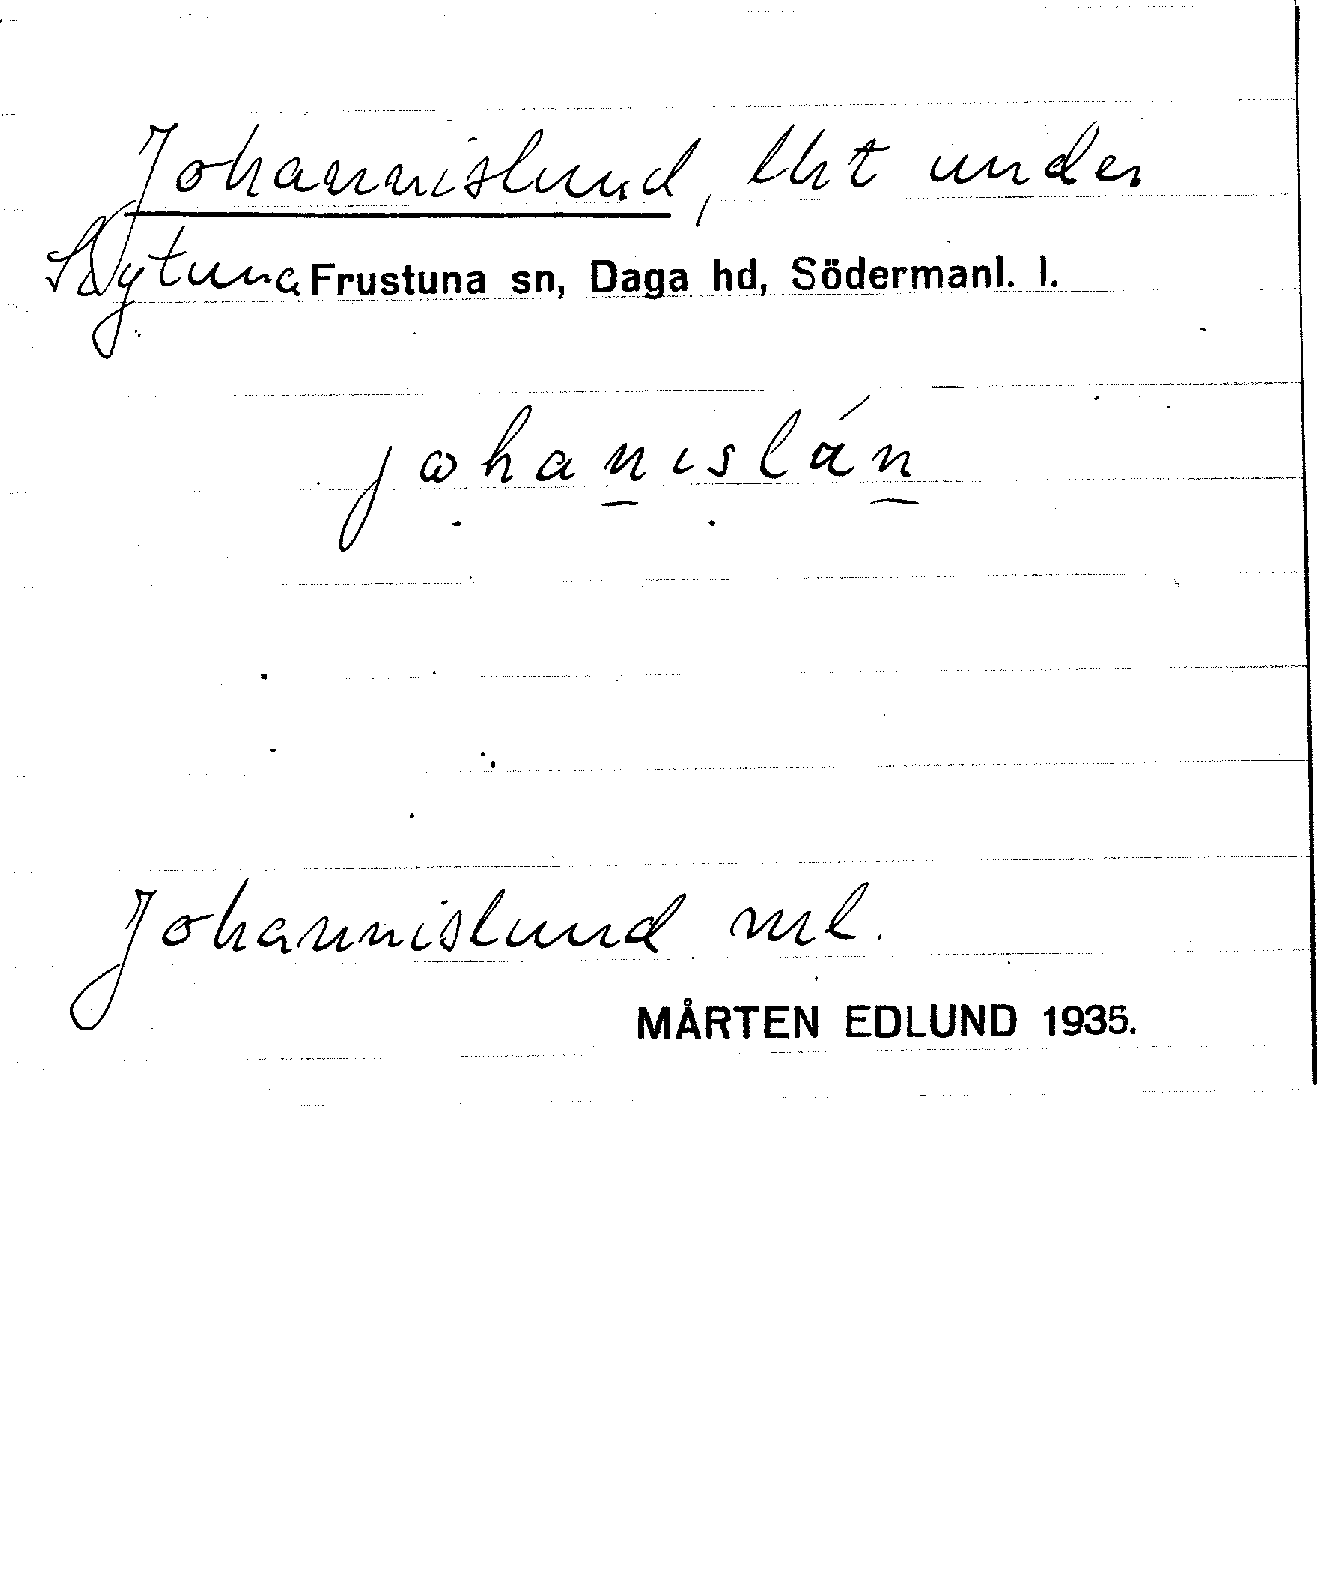 Johannislund, lht under
Skytuna Frustuna sn, Daga hd, Södermanl. l.
johanislán
Johannislund ml.
MÅRTEN EDLUND 1935.